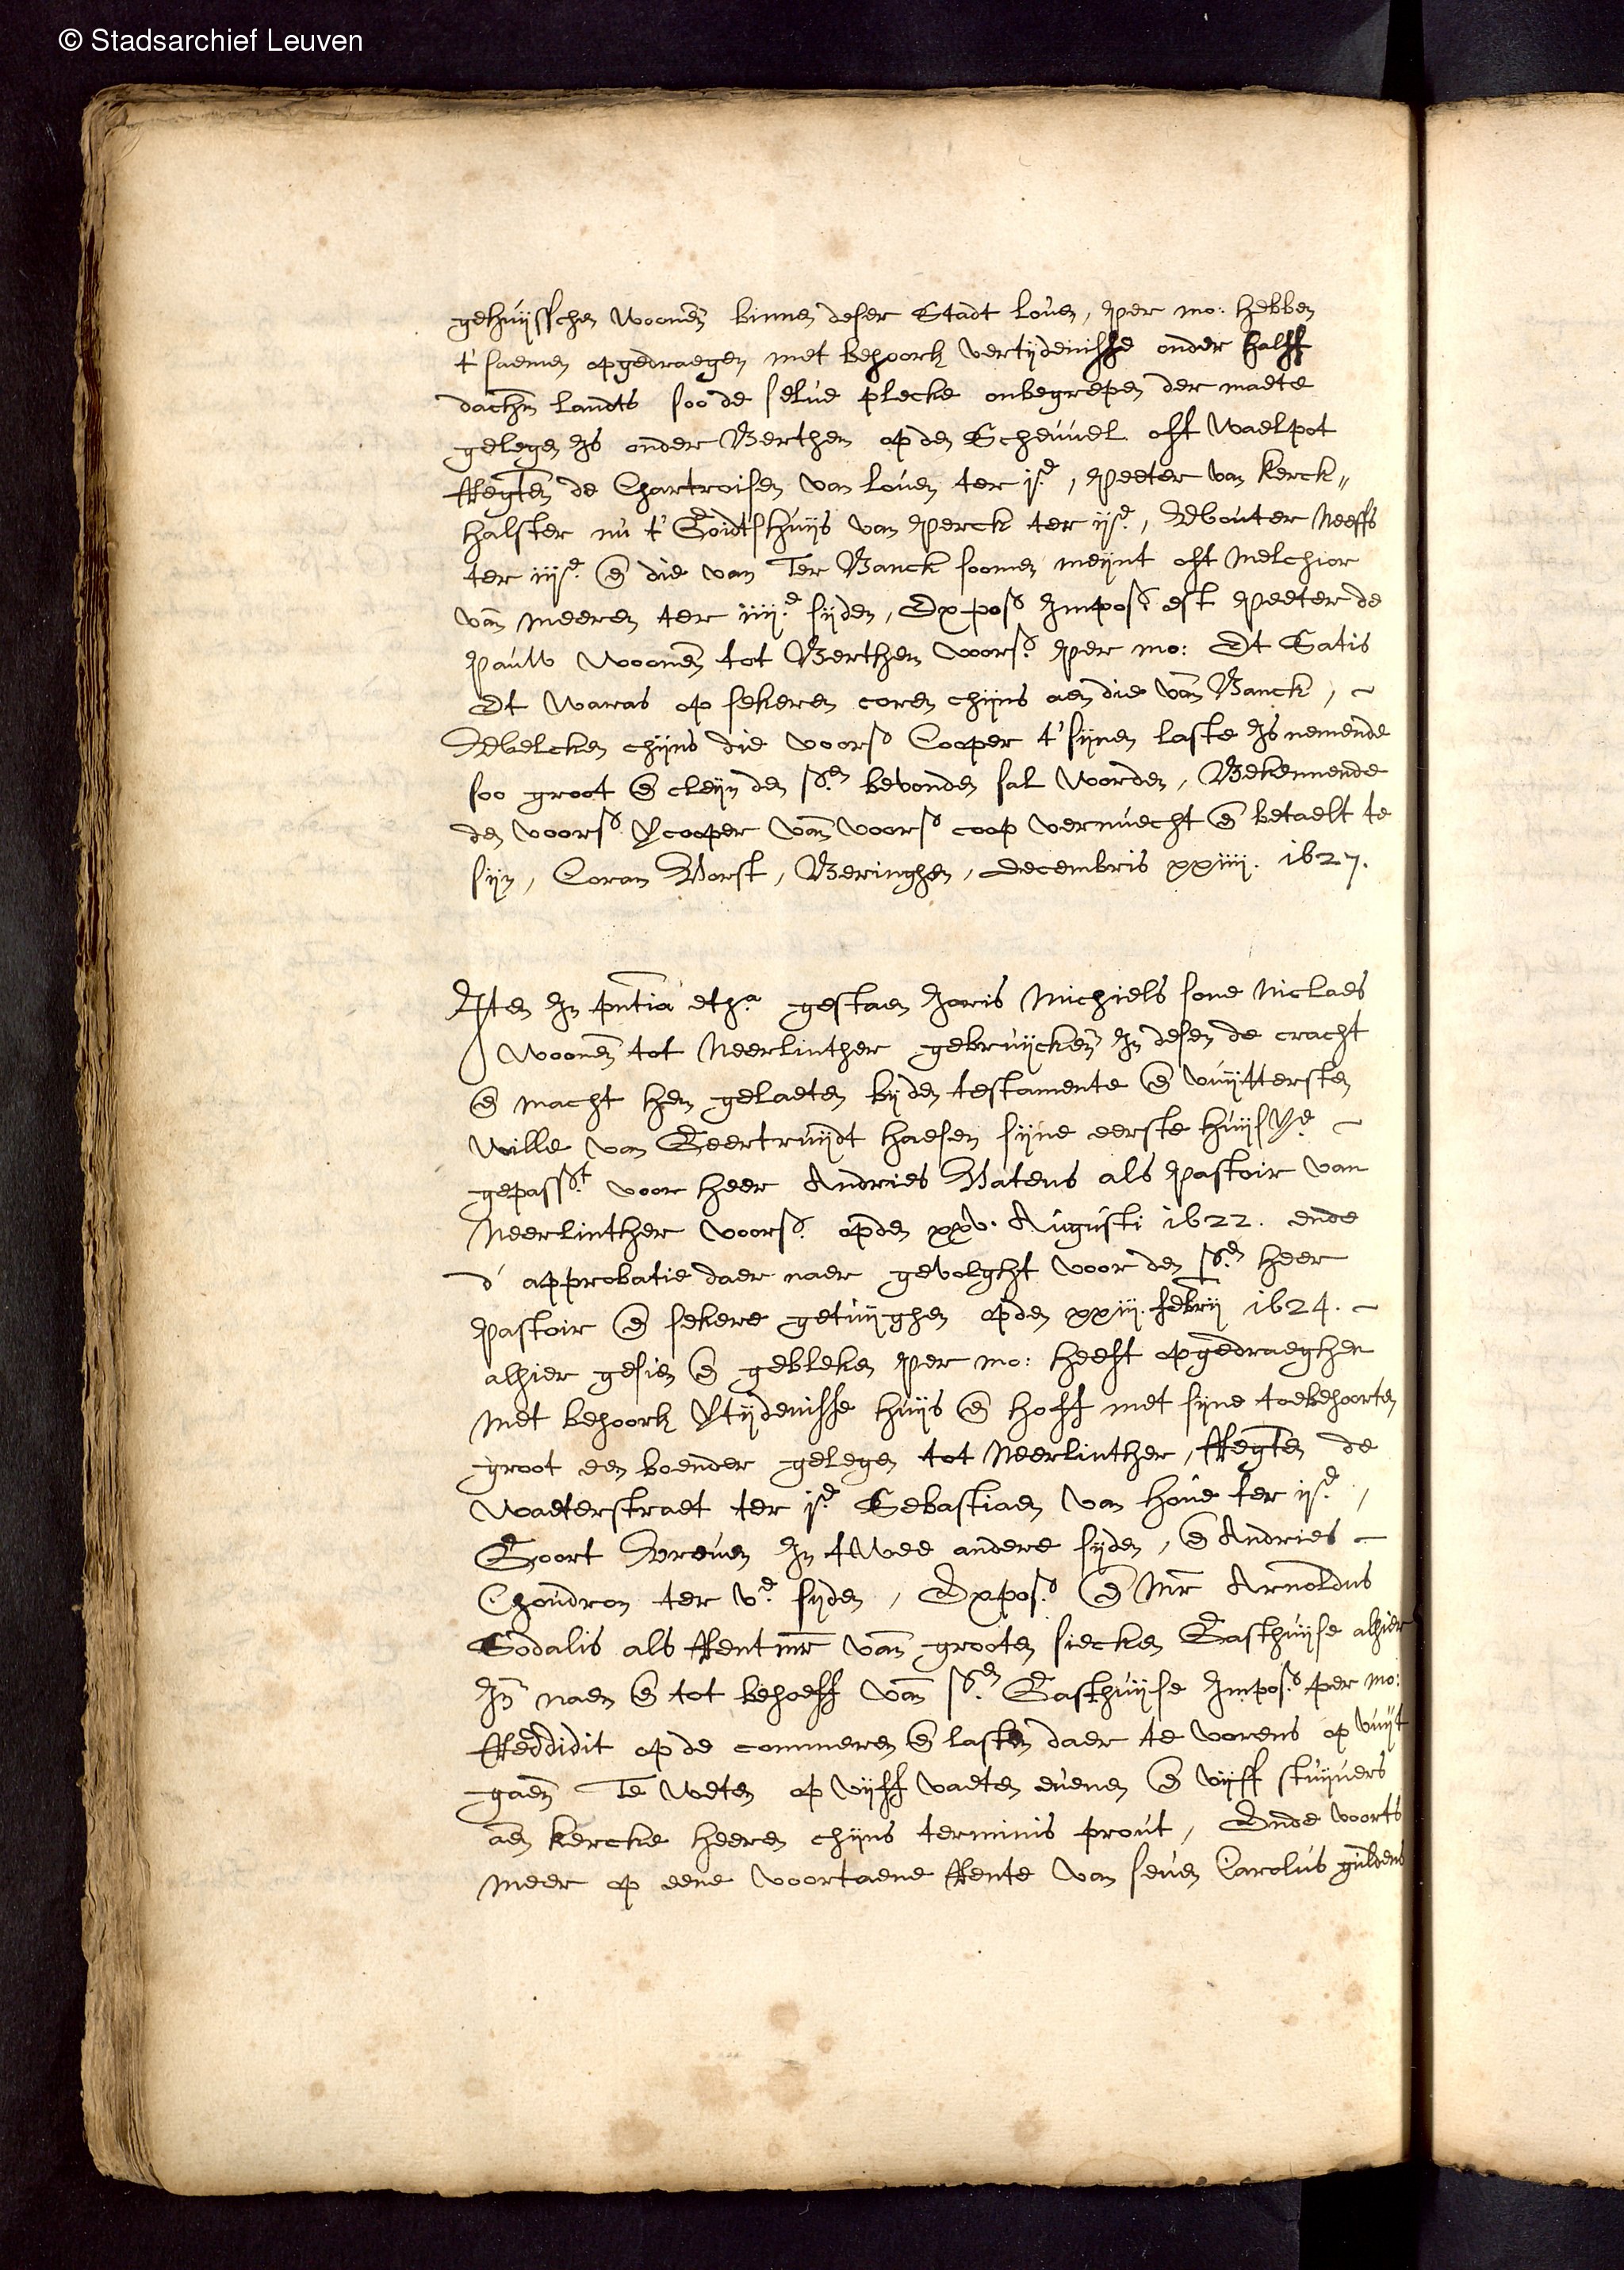 © Stadsarchief Leuven
gehuysschen woonen binnen deser Stadt loven, per mo: hebben
t'saemen opgedraegen met behoorl vertijdenisse onder halff
dachm landts soo de selve plecke onbegrepen der maete
gelegen is onder Berthem op den Scheuvel oft waelpot
Regten de Chartroisen van loven ter js.e, Peeter van Kerck„
halster nu t'Goidtshuys van Perck ter ijs.e, Wouter Neeffs
ter iijs.e en die van Ter Banck soomen meynt oft Melchior
van meeren ter iiij.e syden, Expos. Impos. est Peeter de
Pauw woonen tot Berthem voors. per mo: Et Satis
Et waras op sekeren coren chijns aen die van Banck, ~
Welcken chijns die voors. Cooper t'synen laste is nemende
soo groot en cleyn den s.en bevonden sal worden, Bekennende
den voors. vercooper van voors. coop vernuecht en betaelt te
syn, Coram Vorst, Beringhen, decembris xxiiij. 1627.
Item In pntia etc.a gestaen Joris Michiels sone Niclaes
woonen tot Neerlinther gebruycken In desen de cracht
en macht hem gelaeten byden testamente en vuytterste
wille van Geertruydt haesen syne eerste huysv.e ~
gepass.t voor heer Andries Matens als Pastoir van
Neerlinther voors. opden xxv. Augusti 1622. ende
d'approbatie daer naer gevolght voor den s.en heer
Pastoir en sekere getuyghen opden xxiij. febrij 1624. ~
alhier gesien en gebleken per mo: heeft opgedraeghen
met behoorl vertijdenisse huys en hoff met syne toebehoorten
groot een boender gelegen tot Neerlinther, Regten de
waeterstraet ter js.e Sebastiaen van hove ter ijs.e,
Goort Vreven In twee andere syden, en Andries ~
Choudron ter v.e syden, Expos. en Mr Arnoldus
Sodalis als Rentmr van grooten siecken Gasthuyse alhier
In naem en tot behoeff van s.en Gasthuyse Impos. per mo:
Reddidit op de commeren en lasten daer te vorens op vuyt
gaen Te weten op vijff vaeten evenen en vijff stuyvers
aen kercke heeren chijns terminis prout, Ende voorts
meer op eene voortaene Rente van seven Carolus guldens